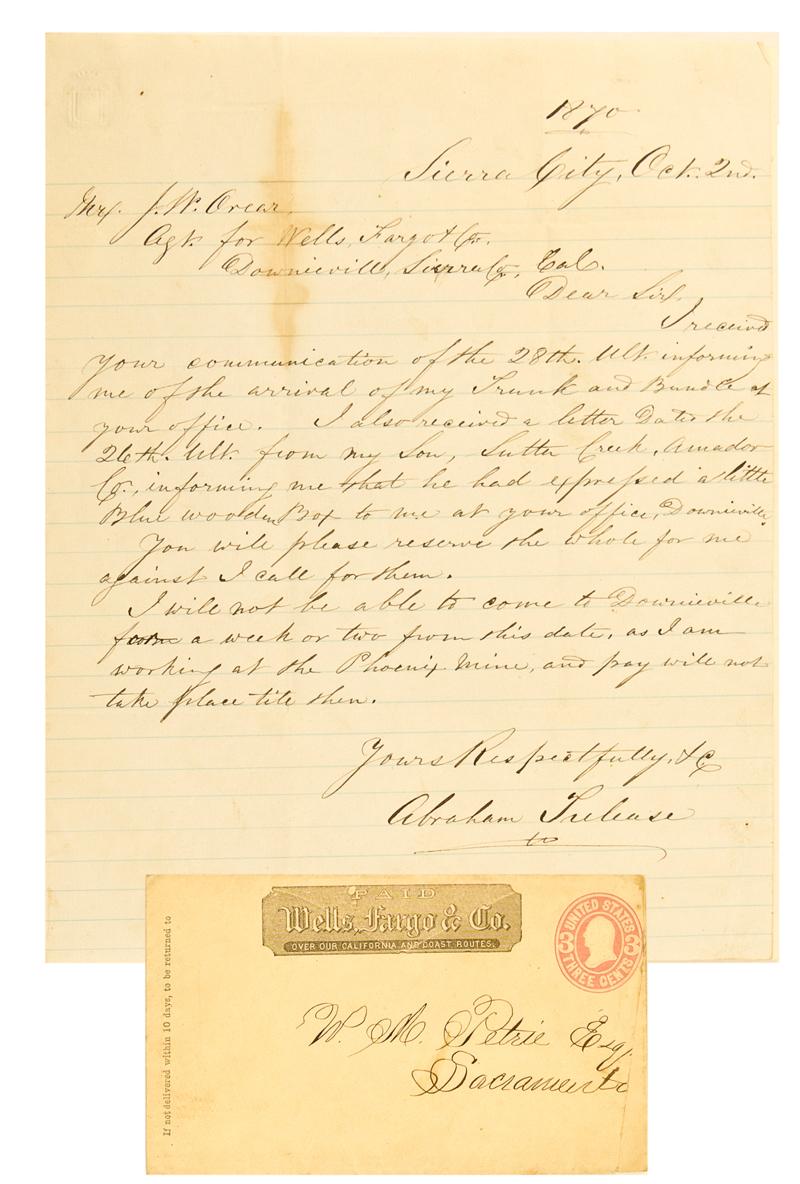 1870
Sierra City, Oct. 2nd.
Mr. J. W. Orear,
Agt. for Wells, Fargo & Co.
Downieville, Sierra Co., Cal.
Dear Sir,
I received
your communication of the 28th. Ult. informing
me of the arrival of my Trunk and Bundle at
your office. I also received a letter Dated the
26th. Ult. from my Son, Sutter Creek, Amador
Co., informing me that he had expressed a little
Blue wooden Box to me at your office, Downieville.
You will please reserve the whole for me
against I call for them.
I will not be able to come to Downieville
a week or two from this date, as I am
working at the Phoenix Mine, and pay will not
take place till then.
Yours Respectfully, &c
Abraham Trelease
PAID
Wells, Fargo & Co.
OVER OUR CALIFORNIA AND COAST ROUTES.
UNITED STATES
3 3
THREE CENTS
If not delivered within 10 days, to be returned to
W. M. Petrie Esq.
Sacramento